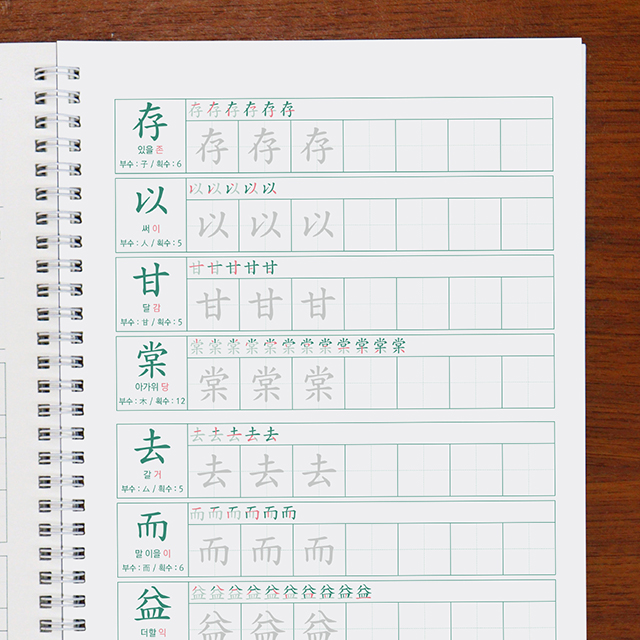 存 存 存 存 存 存 存
있을 존 存 存 存
부수 : 子 / 획수 : 6
以 以 以 以 以 以
써 이 以 以 以
부수 : 人 / 획수 : 5
甘 甘 甘 甘 甘 甘
달 감 甘 甘 甘
부수 : 甘 / 획수 : 5
棠 棠 棠 棠 棠 棠 棠 棠 棠 棠 棠 棠 棠
아가위 당 棠 棠 棠
부수 : 木 / 획수 : 12
去 去 去 去 去 去
갈 거 去 去 去
부수 : 厶 / 획수 : 5
而 而 而 而 而 而 而
말 이을 이 而 而 而
부수 : 而 / 획수 : 6
益 益 益 益 益 益 益 益 益 益 益
더할 익 益 益 益